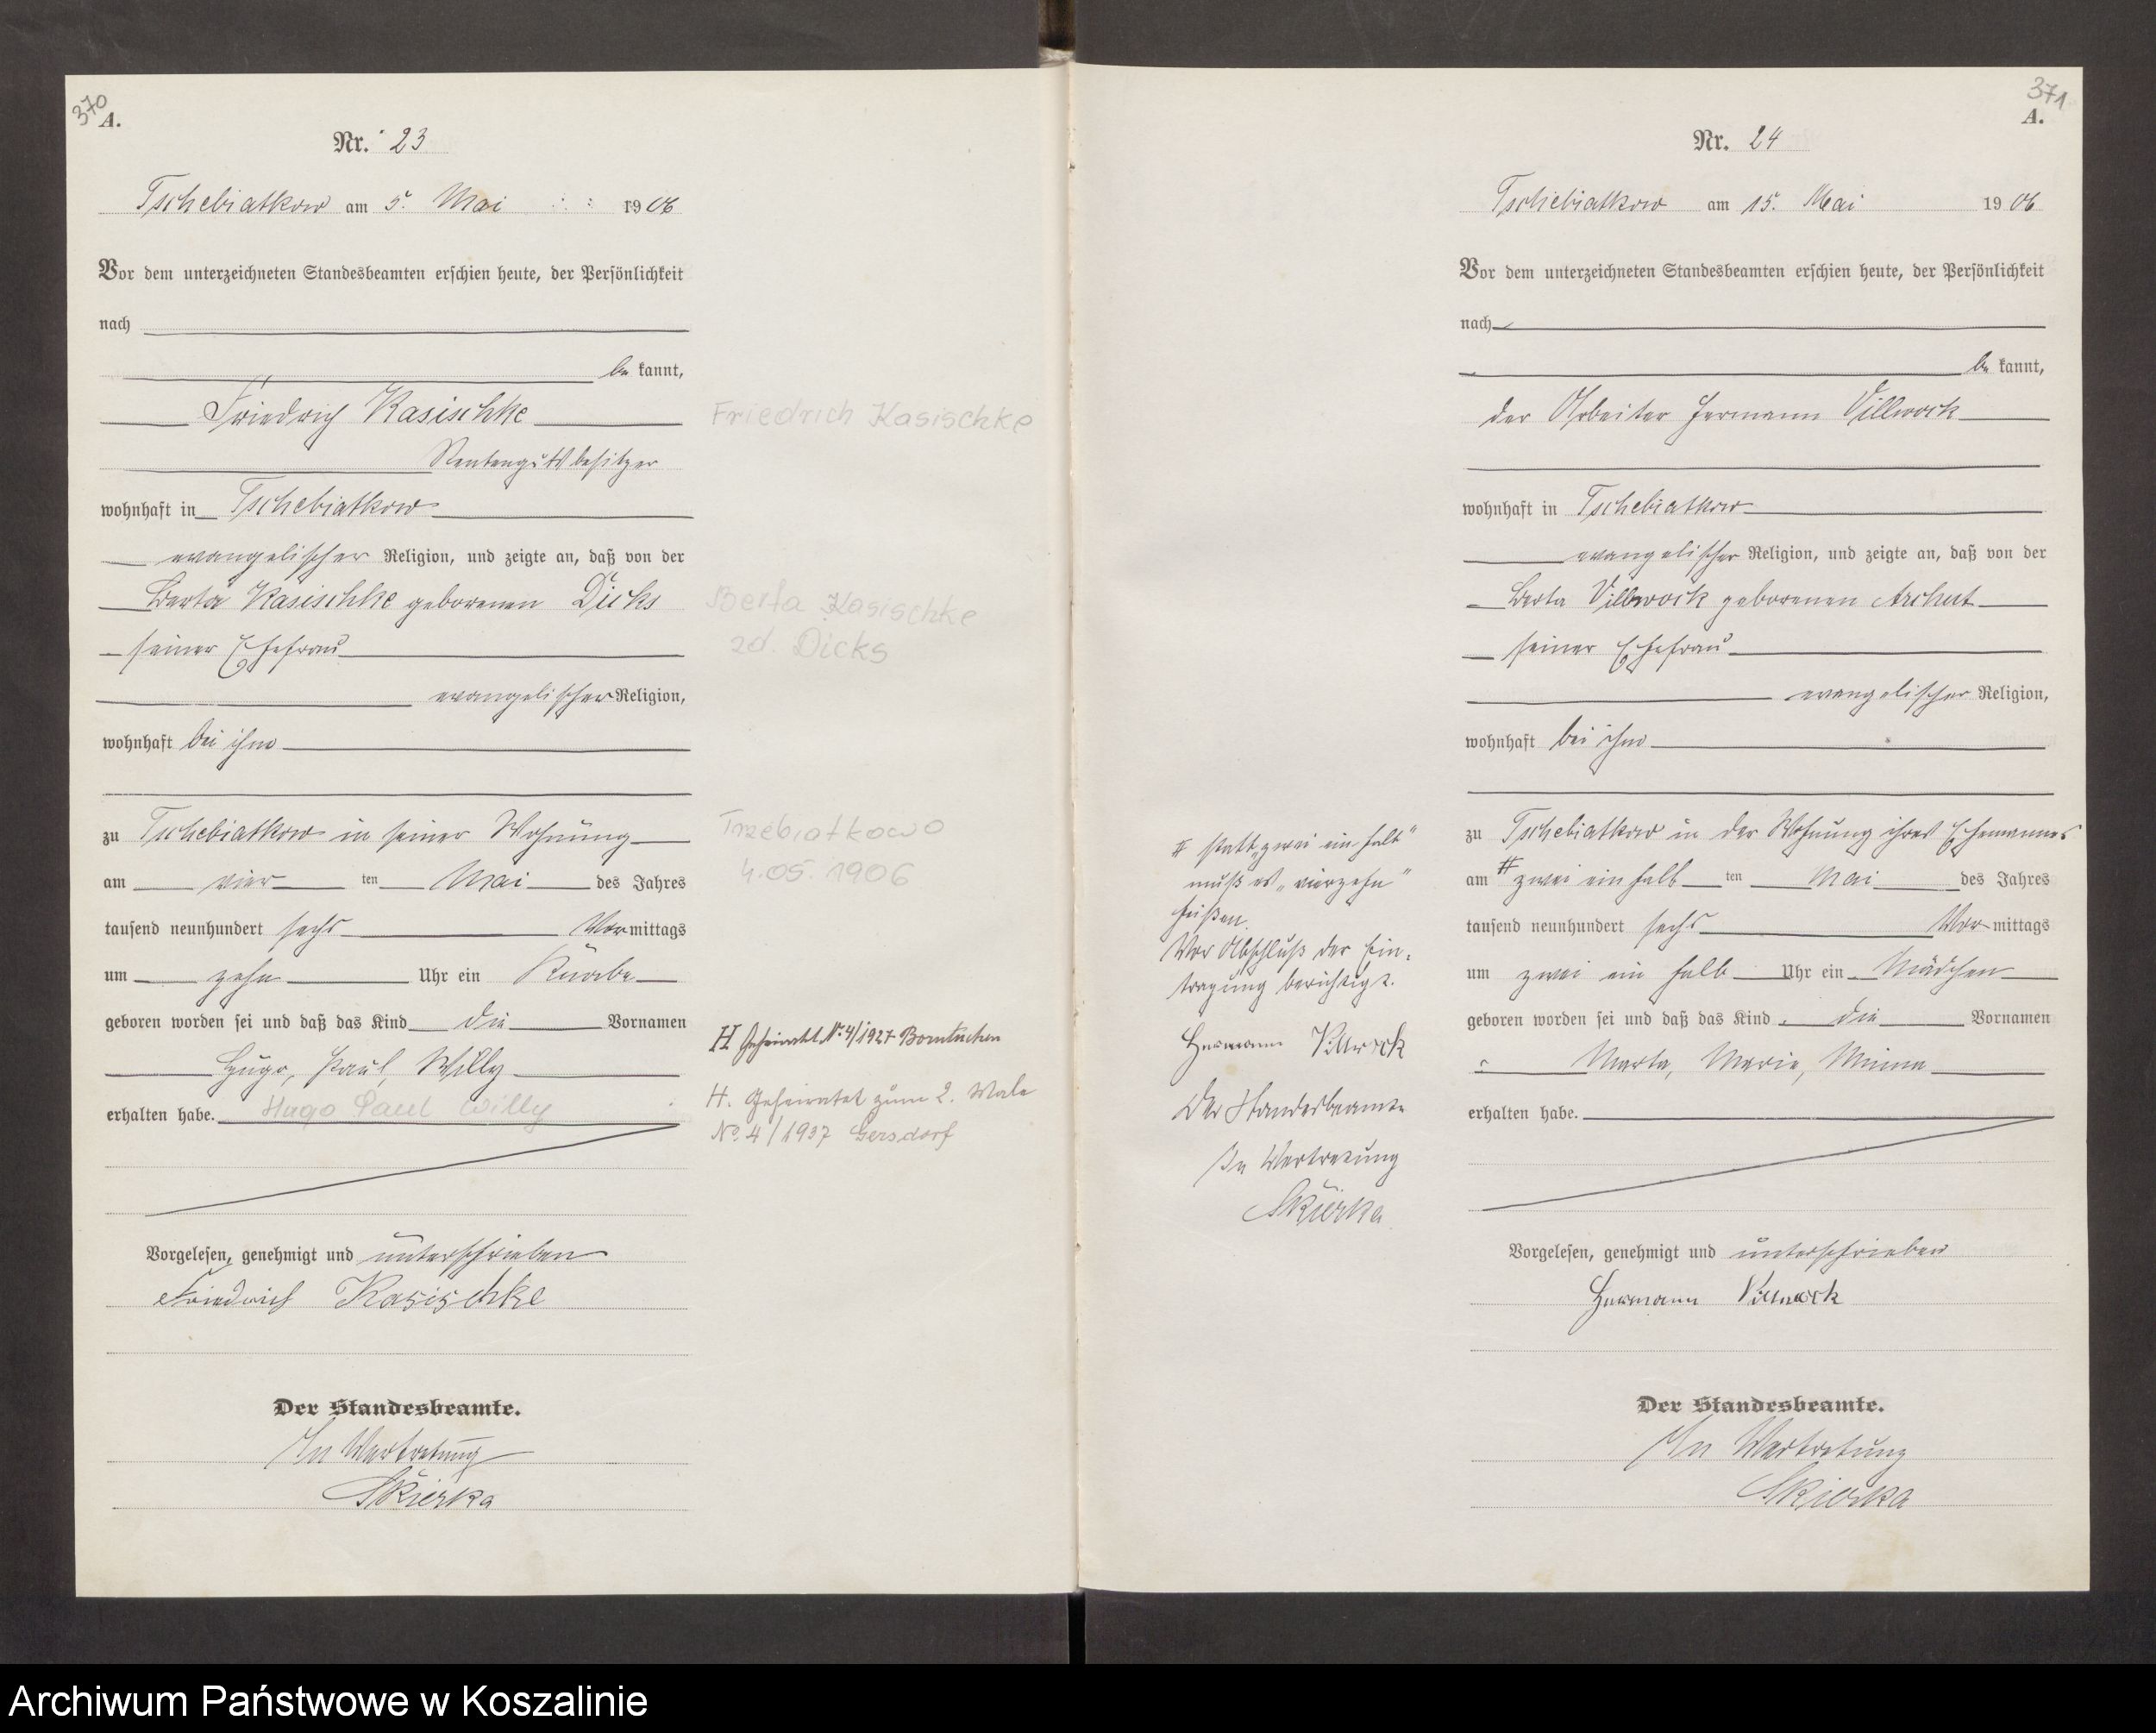 370
A.
Nr. 23
Tschebiatkow am 5. Mai 1906
Vor dem unterzeichneten Standesbeamten erschien heute, der Persönlichkeit
nach
be kannt,
Friedrich Kasischke
Rentengutsbesitzer
wohnhaft in Tschebiatkow
evangelischer Religion, und zeigte an, daß von der
Berta Kasischke geborenen Dicks
seiner Ehefrau
evangelischer Religion,
wohnhaft bei ihm
zu Tschebiatkow in seiner Wohnung
am vier ten Mai des Jahres
tausend neunhundert sechs Vormittags
um zehn Uhr ein Knabe
geboren worden sei und daß das Kind die Vornamen
Hugo, Paul, Willy
erhalten habe. Hugo Paul Willy
Vorgelesen, genehmigt und unterschrieben
Friedrich Kasischke
Der Standesbeamte.
In Vertretung
Skierka
Friedrich Kasischke
Berta Kasischke
zd. Dicks
Trzebiatkowo
4.05.1906
H Geheiratet Nr. 4/1927 Borntuchen
H. Geheiratet zum 2. Male
No. 4/1937 Gersdorf
371
A.
Nr. 24
Tschebiatkow am 15. Mai 1906
Vor dem unterzeichneten Standesbeamten erschien heute, der Persönlichkeit
nach
be kannt,
der Arbeiter Hermann Villwock
wohnhaft in Tschebiatkow
evangelischer Religion, und zeigte an, daß von der
Berta Villwock geborenen Archut
seiner Ehefrau
evangelischer Religion,
wohnhaft bei ihm
zu Tschebiatkow in der Wohnung ihres Ehemannes
am # zwei ein halb ten Mai des Jahres
tausend neunhundert sechs Vor mittags
um zwei ein halb Uhr ein Mädchen
geboren worden sei und daß das Kind die Vornamen
Marta, Marie, Minna
erhalten habe.
Vorgelesen, genehmigt und unterschrieben
Hermann Villwock
Der Standesbeamte.
In Vertretung
Skierka
# statt „zwei ein halb"
muß es „vierzehn"
heißen.
Vor Abschluß der Ein-
tragung berichtigt.
Hermann Villwock
Der Standesbeamte
In Vertretung
Skierka
Archiwum Państwowe w Koszalinie